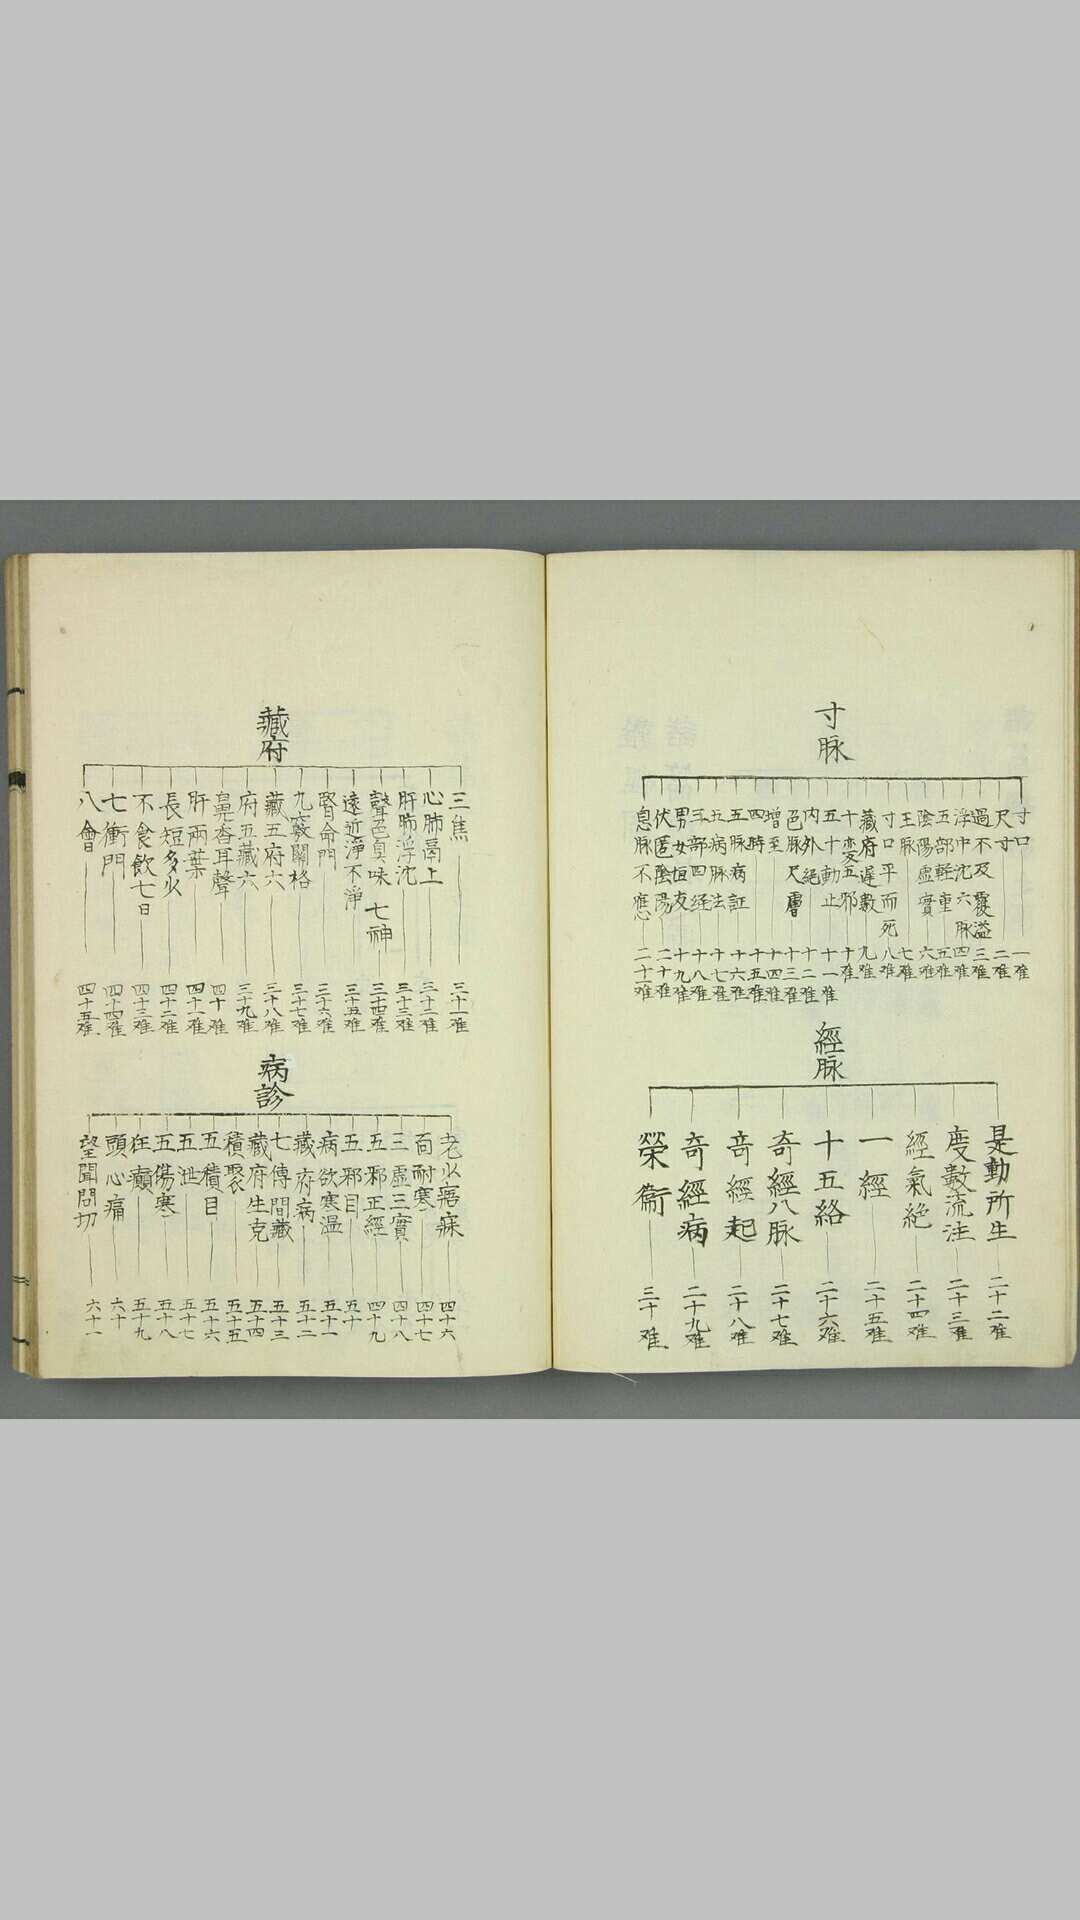 寸脉
寸口 一难
尺寸 二难
過不及覆溢 三难
浮中沈六脉 四难
五部軽重 五难
陰陽虛實 六难
王脉 七难
寸口平而死 八难
藏府遅數 九难
十変五邪 十难
五十動止 十一难
内外絕 十二难
色脉尺膚 十三难
增至 十四难
四時 十五难
五脉病証 十六难
五病脉法 十七难
三部四経 十八难
男女恒反 十九难
伏匿陰陽 二十难
息脉不應 二十一难
經脉
是動所生 二十二难
度數流注 二十三难
經氣絕 二十四难
一經 二十五难
十五絡 二十六难
奇經八脉 二十七难
奇經起 二十八难
奇經病 二十九难
榮衞 三十难
藏府
三焦 三十一难
心肺鬲上 三十二难
肝肺浮沈 三十三难
聲色臭味七神 三十四难
遠近淨不淨 三十五难
腎命門 三十六难
九竅關格 三十七难
藏五府六 三十八难
府五藏六 三十九难
鼻香耳聲 四十难
肝两葉 四十一难
長短多少 四十二难
不食飲七日 四十三难
七衝門 四十四难
八會 四十五难
病診
老少寤寐 四十六
面耐寒 四十七
三虛三實 四十八
五邪正經 四十九
五邪目 五十
病欲寒温 五十一
藏府病 五十二
七傳間藏 五十三
藏府生克 五十四
積聚 五十五
五積目 五十六
五泄 五十七
五傷寒 五十八
狂癲 五十九
頭心痛 六十
望聞問切 六十一